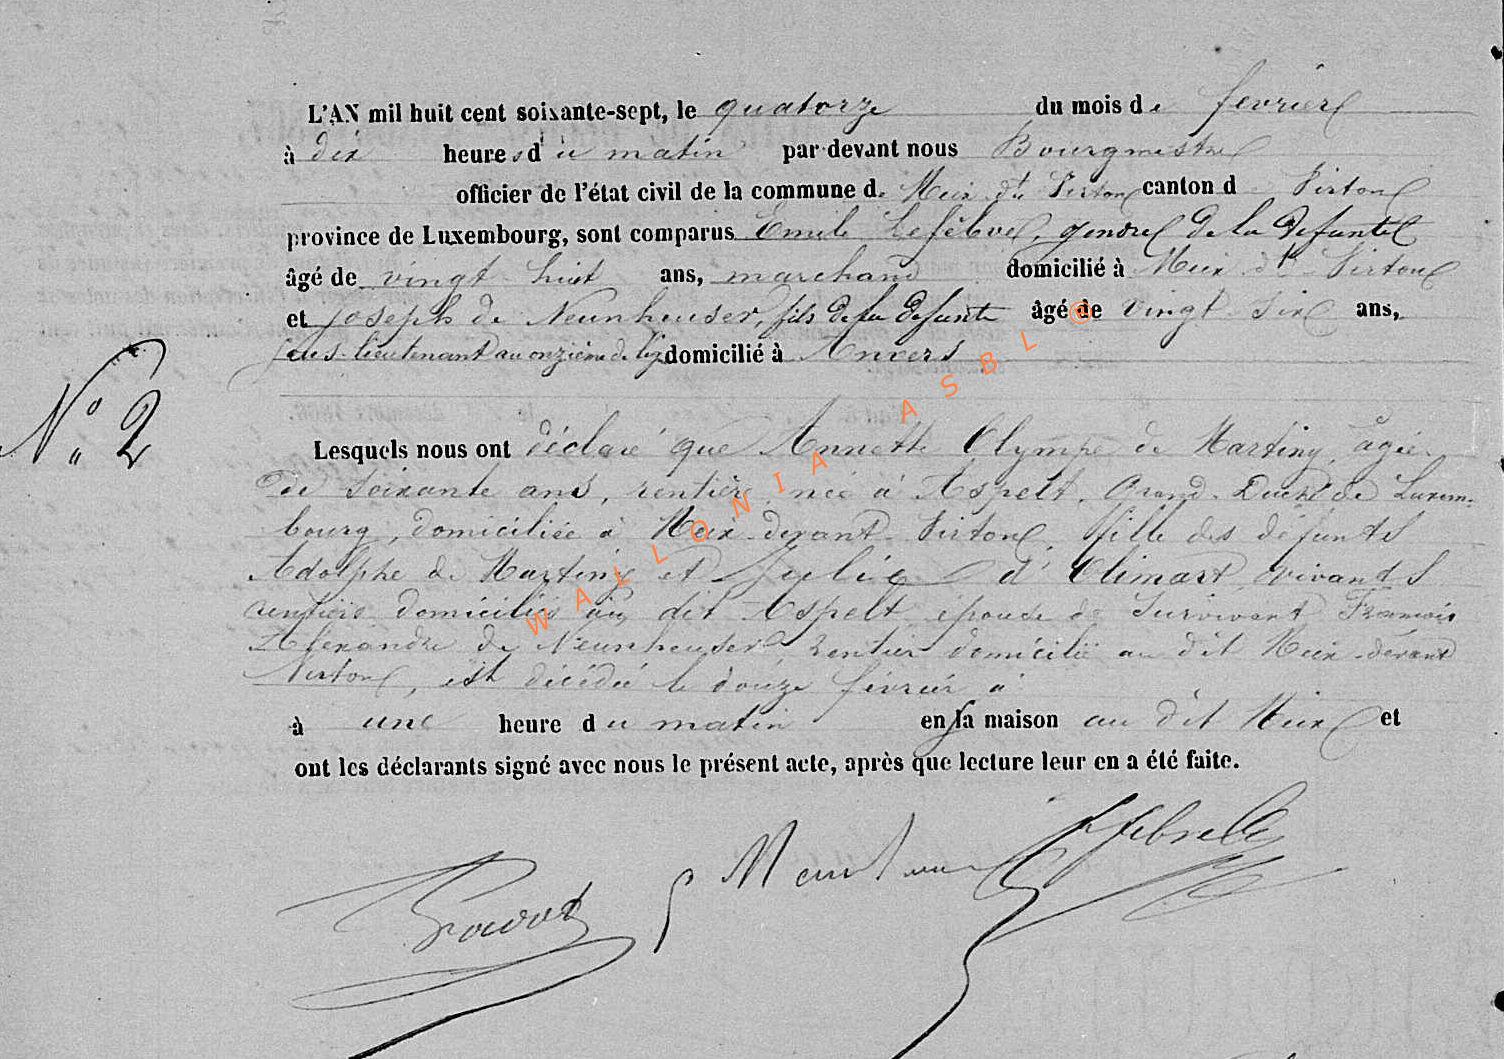 L'AN mil huit cent soixante-sept, le quatorze du mois de fevrier
à dix heures du matin par devant nous Bourgmestre
officier de l'état civil de la commune de Meix dt Virton canton de Virton
province de Luxembourg, sont comparus Emile Lefebvre, gendre de la defunte
âgé de vingt huit ans, marchand domicilié à Meix dt Virton
et Joseph de Neunheuser, fils de la defunte âgé de vingt six ans,
sous-lieutenant au onzième de lig domicilié à Anvers
N° 2
Lesquels nous ont déclaré que Annette Olympe de Martiny, agée
de soixante ans, rentière, née à Aspelt, Grand-Duché de Luxem-
bourg, domiciliée à Meix-devant-Virton, fille des défunts
Adolphe de Martiny et Julie d'Olimart, vivants
rentiers domiciliés au dit Aspelt, épouse de survivant François
Alexandre de Neunheuser, rentier domicilié au dit Meix-devant
Virton, est décédée le douze février à
à une heure du matin en sa maison au dit Meix et
ont les déclarants signé avec nous le présent acte, après que lecture leur en a été faite.
WALLONIA ASBL @